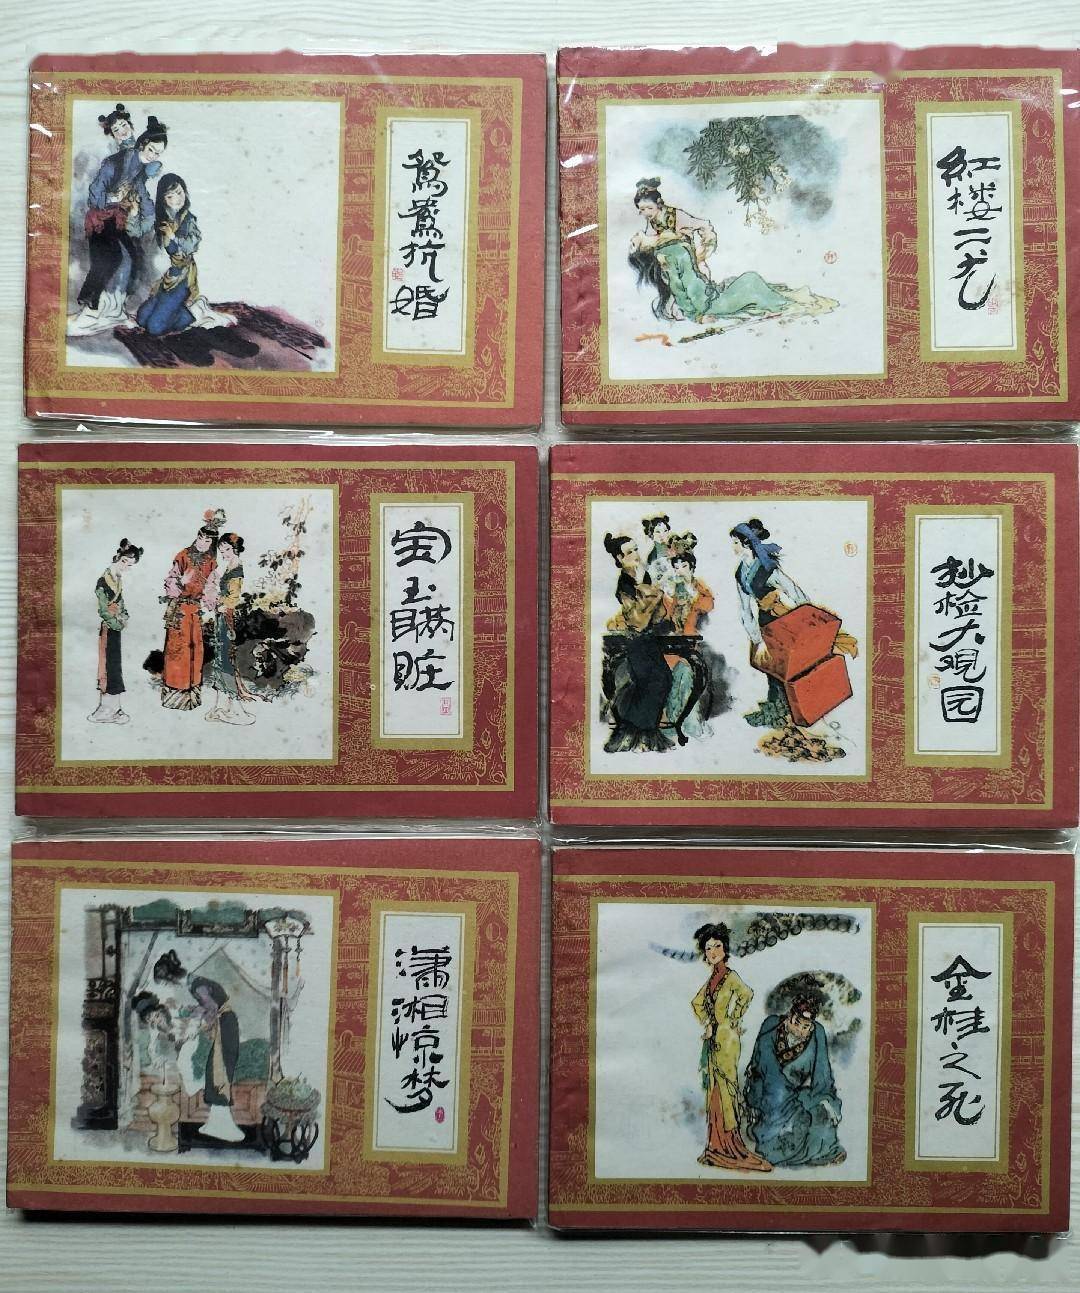 鸳鸯抗婚
红楼二尤
宝玉瞒赃
抄检大观园
潇湘惊梦
金桂之死